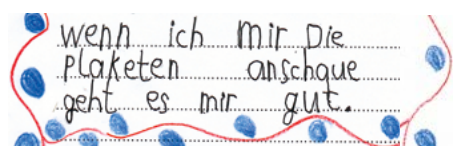 wenn ich mir Die
Plaketen anschaue
geht es mir gut.